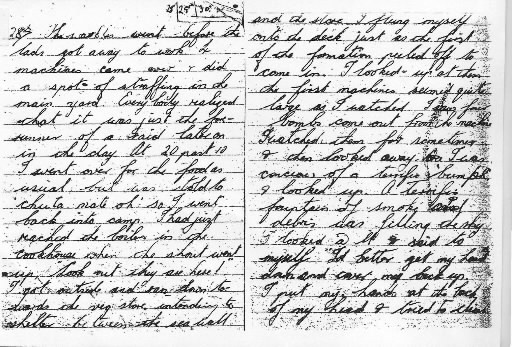 28th This morning went before the
lads got away to work 2
machines came over & did
a spot of straffing in the
main yard. Every body realised
that it was just the fore-
runner of a raid later on
in the day. At 20 past 10
I went over for the food as
usual but was told to
'chuta mate oh' so I went
back into camp. I had just
reached the boiler in the
cookhouse when the shout went
up, "Look out they are here!
I got outside and ran down to-
wards the veg store, intending to
shelter between the sea wall
and the store. I flung myself
onto the deck just as the first
of the formation peeled off to
come in. I looked up at them
the first machines seemed quite
large as I watched I saw four
bombs come out from the machine
I watched them for sometime
& then looked away I was
concious of a terrific 'bumph'
& looked up. A terrific
fountain of smoke and
debris was filling the sky.
I looked at it & said to
myself "I'd better get my head
down and cover my back up,
I put my hands at the back
of my head & tried to